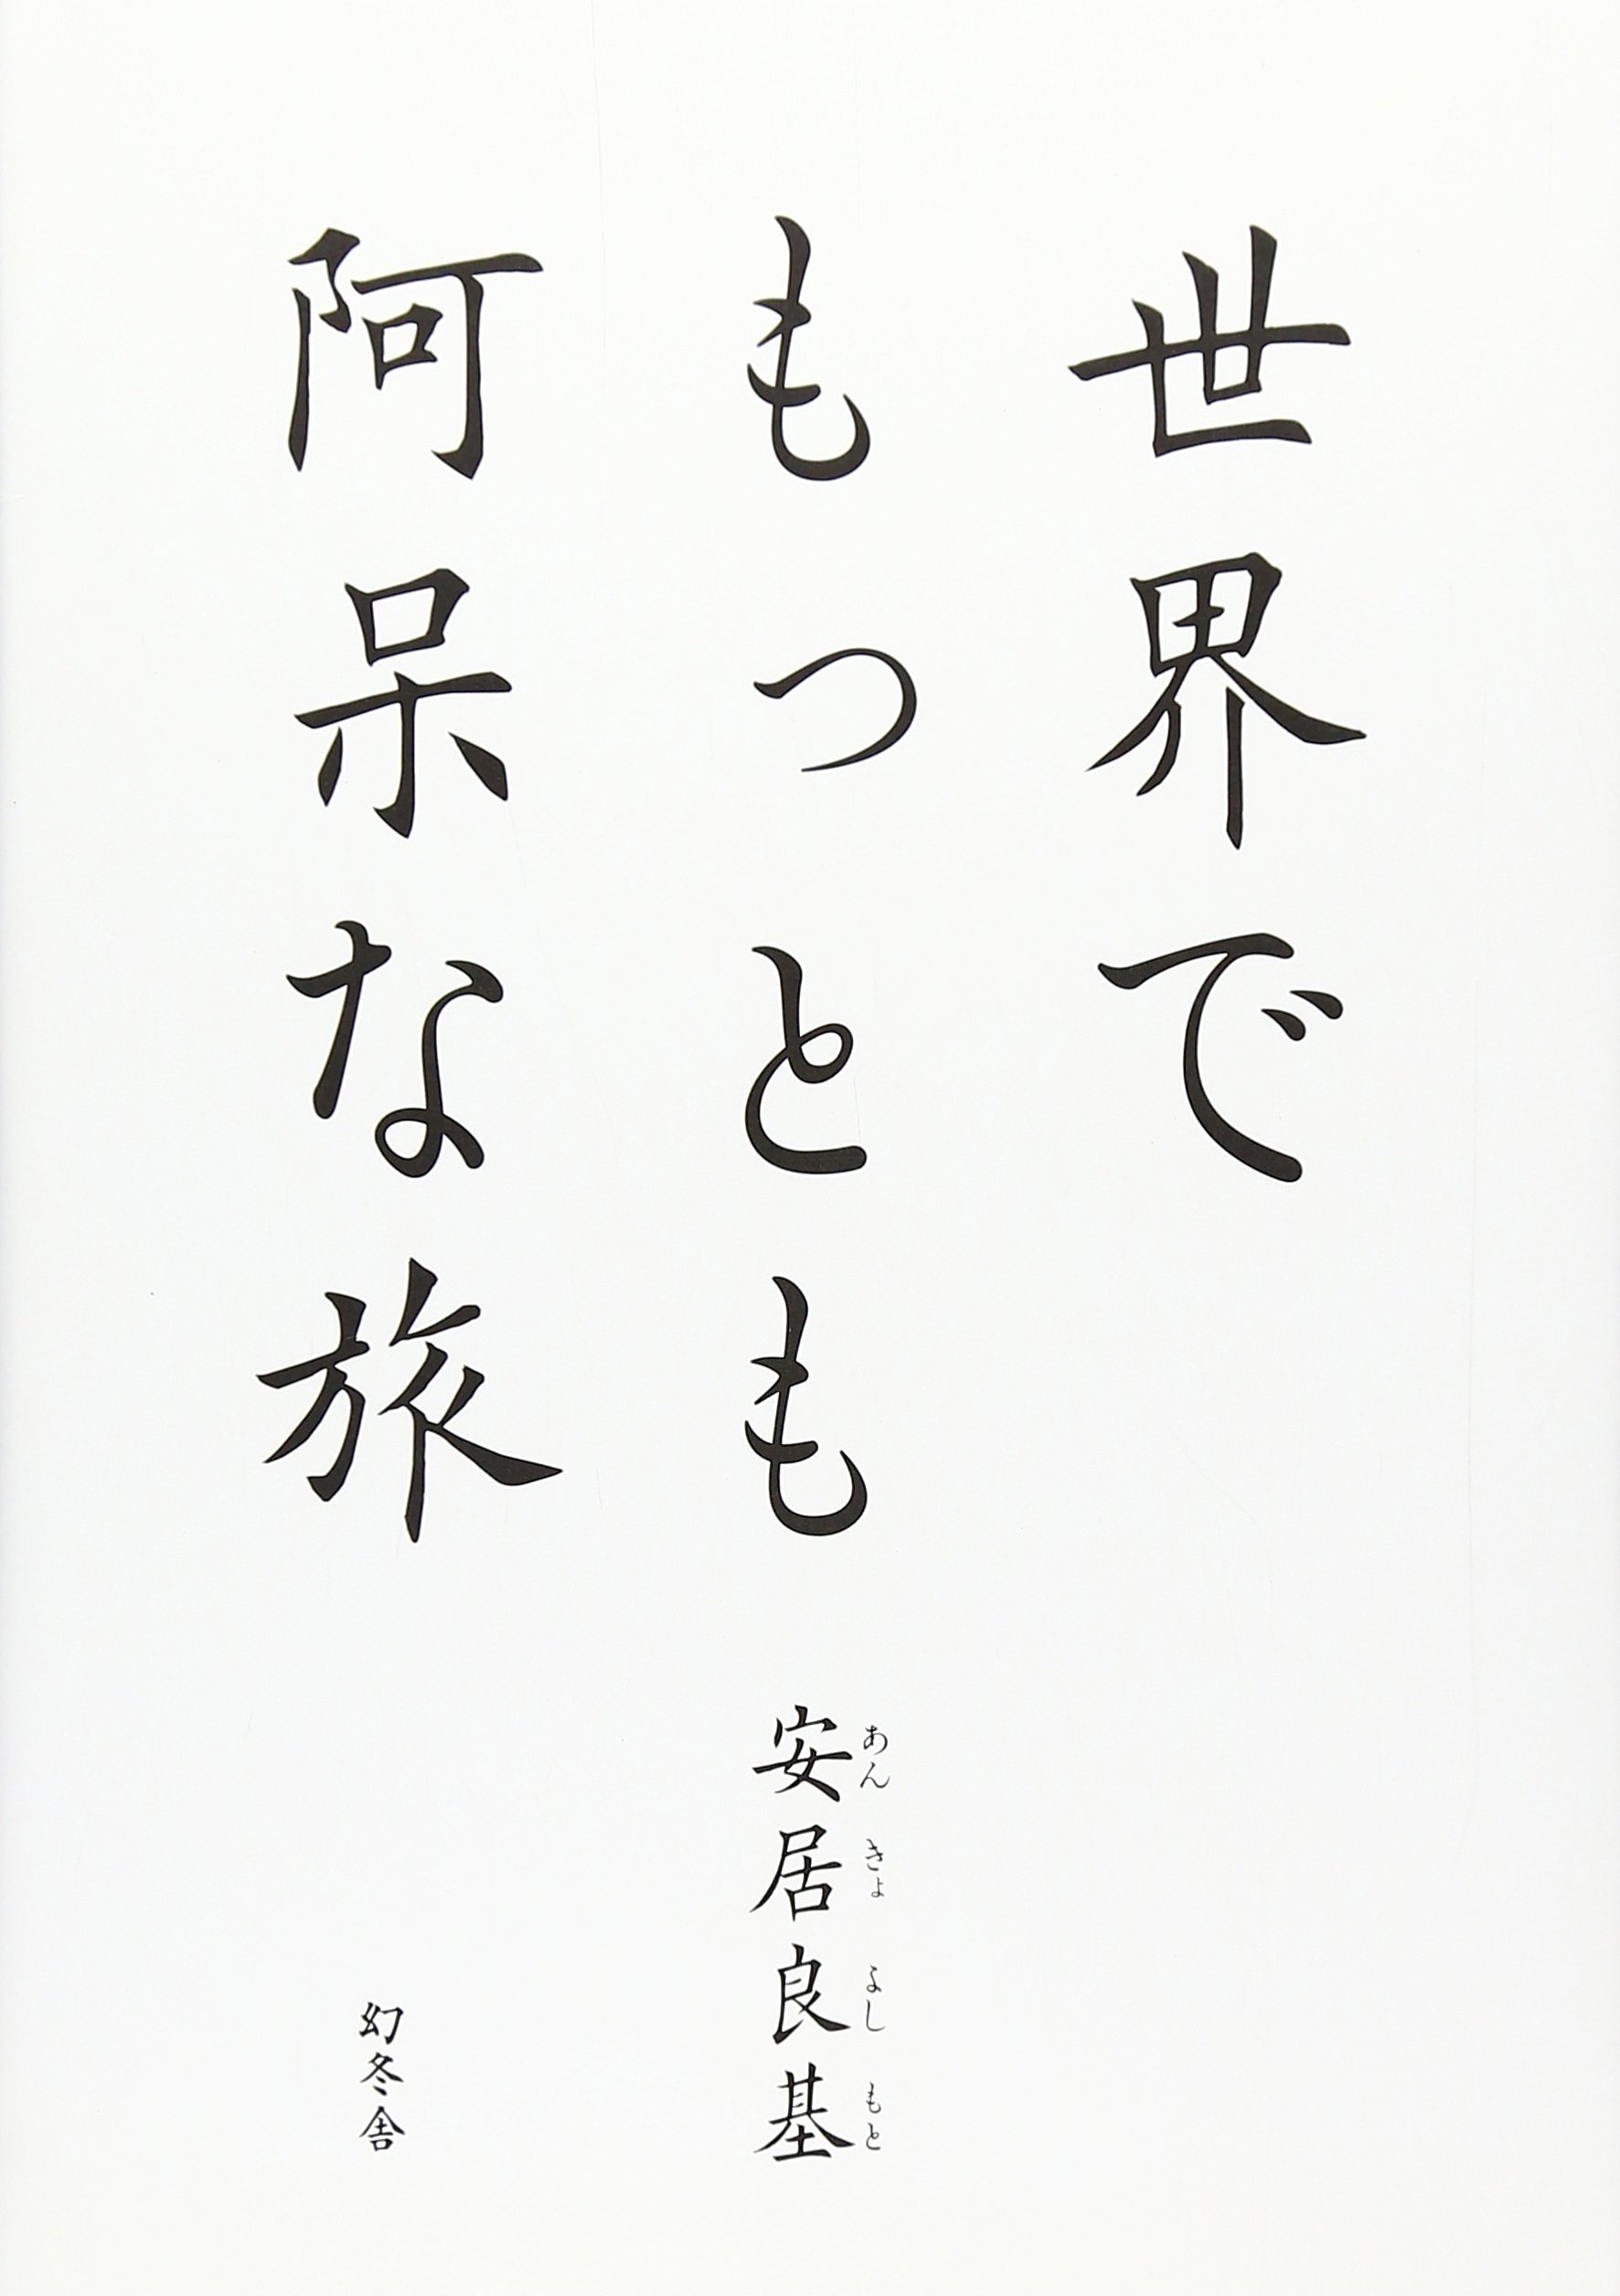 世界で
もっとも
阿呆な旅
安居良基
あんきょよしもと
幻冬舎